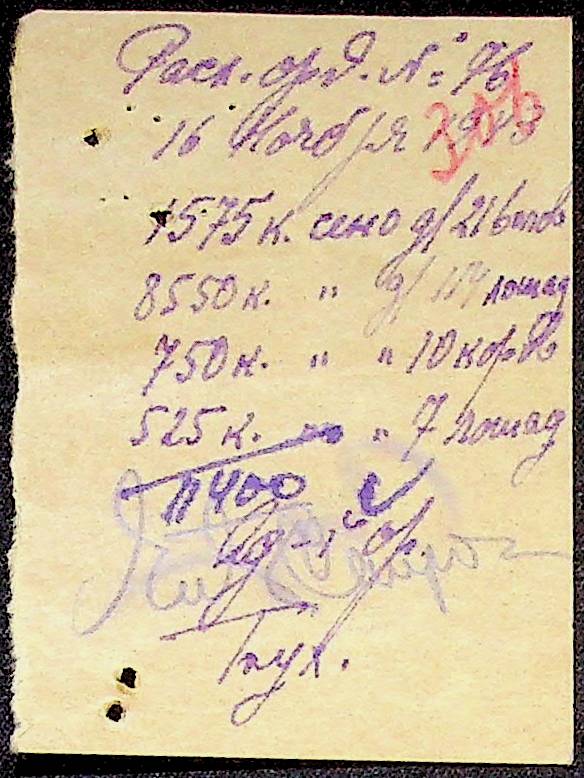 Расх. орд. № 96
306
16 Ноября 1943
1575 к. сено д/21 волов
8550 к. " д/114 лошад
750 к. " " 10 коров
525 к. " " 7 лошад
11400
Бух.